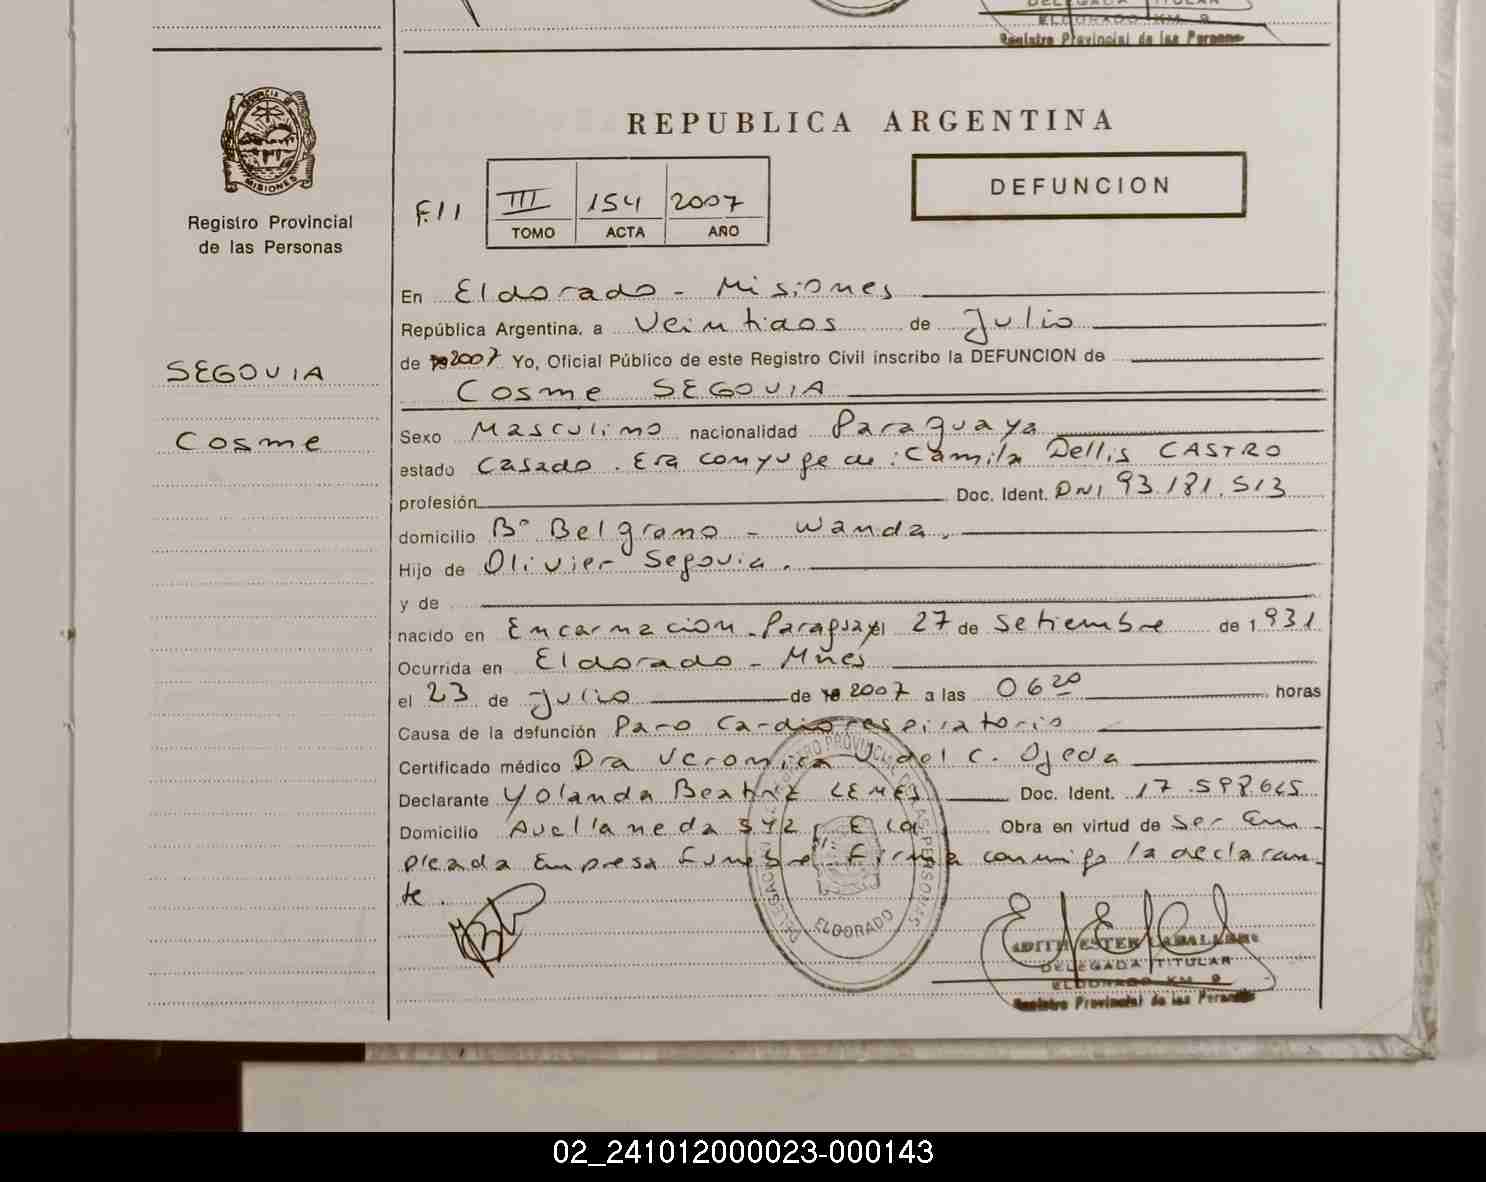 DELEGADA TITULAR
ELDORADO KM. 9
Registro Provincial de las Personas
PROVINCIA DE
MISIONES
Registro Provincial
de las Personas
SEGOVIA
Cosme
REPUBLICA ARGENTINA
F.11 III 154 2007
TOMO ACTA AÑO
DEFUNCION
En Eldorado - Misiones
República Argentina, a Veintidos de Julio
de 2007 Yo, Oficial Público de este Registro Civil inscribo la DEFUNCION de
Cosme SEGOVIA
Sexo Masculino nacionalidad Paraguaya
estado Casado. Era conyuge de: Camila Dellis CASTRO
profesión Doc. Ident. DNI 93.181.513
domicilio Bº Belgrano - Wanda.
Hijo de Olivier Segovia.
y de
nacido en Encarnacion - Paraguay el 27 de Setiembre de 1931
Ocurrida en Eldorado - Mnes
el 23 de Julio de 2007 a las 06 20 horas
Causa de la defunción Paro Cardiorespiratorio
Certificado médico Dra Veronica del C. Ojeda
Declarante Yolanda Beatriz LEMES Doc. Ident. 17.598.625
Domicilio Avellaneda 542, Obra en virtud de Ser Em-
pleada Empresa Funebre. Firma conmigo la declaran-
te.
REGISTRO PROVINCIAL DE LAS PERSONAS
DELEGACION
ELDORADO
EDITH ESTER CABALLERO
DELEGADA TITULAR
ELDORADO KM. 9
Registro Provincial de las Personas
02_241012000023-000143